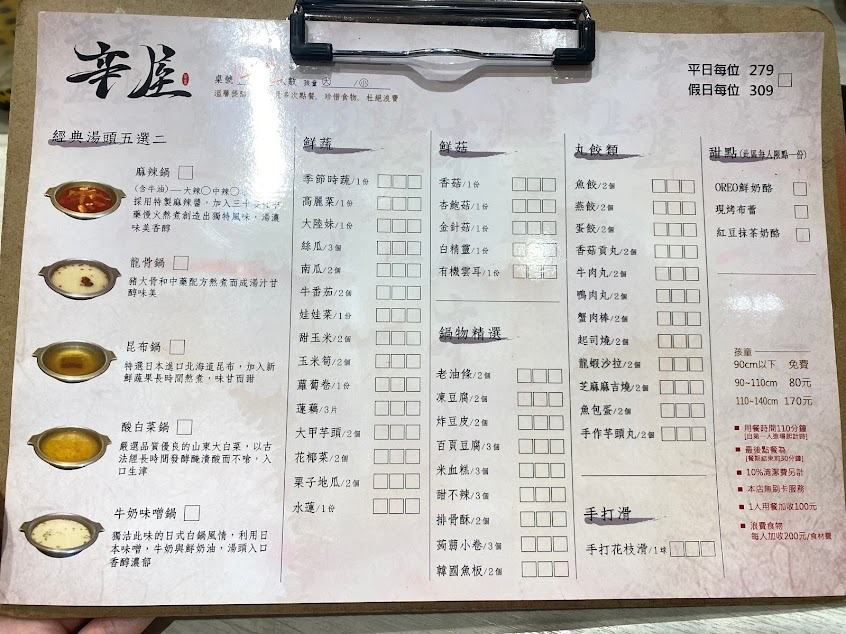 辛屋
桌號 人數 孩童 大 /小
溫馨提 多次點餐, 珍惜食物, 杜絕浪費
平日每位 279
假日每位 309
經典湯頭五選二
麻辣鍋
(含牛油)—大辣 中辣
採用特製麻辣醬,加入三十
藥慢火熬煮創造出獨特風味,湯濃
味美香醇
龍骨鍋
豬大骨和中藥配方熬煮而成湯汁甘
醇味美
昆布鍋
特選日本進口北海道昆布,加入新
鮮蔬果長時間熬煮,味甘而甜
酸白菜鍋
嚴選品質優良的山東大白菜,以古
法經長時間發酵醃漬酸而不嗆,入
口生津
牛奶味噌鍋
獨沽此味的日式白鍋風情,利用日
本味噌,牛奶與鮮奶油,湯頭入口
香醇濃郁
鮮蔬
季節時蔬/1份
高麗菜/1份
大陸妹/1份
絲瓜/3個
南瓜/2個
牛番茄/2個
娃娃菜/1份
甜玉米/2個
玉米筍/2個
蘿蔔卷/1份
蓮藕/3片
大甲芋頭/2個
花椰菜/2個
栗子地瓜/2個
水蓮/1份
鮮菇
香菇/1份
杏鮑菇/1份
金針菇/1份
白精靈/1份
有機雲耳/1份
鍋物精選
老油條/2個
凍豆腐/2個
炸豆皮/2個
百頁豆腐/3個
米血糕/3個
甜不辣/3個
排骨酥/2個
蒟蒻小卷/3個
韓國魚板/2個
丸餃類
魚餃/2個
燕餃/2個
蛋餃/2個
香菇貢丸/2個
牛肉丸/2個
鴨肉丸/2個
蟹肉棒/2個
起司燒/2個
龍蝦沙拉/2個
芝麻麻吉燒/2個
魚包蛋/2個
手作芋頭丸/2個
手打滑
手打花枝滑/1球
甜點(此區每人限點一份)
OREO鮮奶酪
現烤布蕾
紅豆抹茶奶酪
孩童
90cm以下 免費
90~110cm 80元
110~140cm 170元
用餐時間110分鐘
[自第一人進場起計時]
最後點餐為
[餐期結束前30分鐘]
10%清潔費另計
本店無刷卡服務
1人用餐加收100元
浪費食物
每人加收200元/食材費